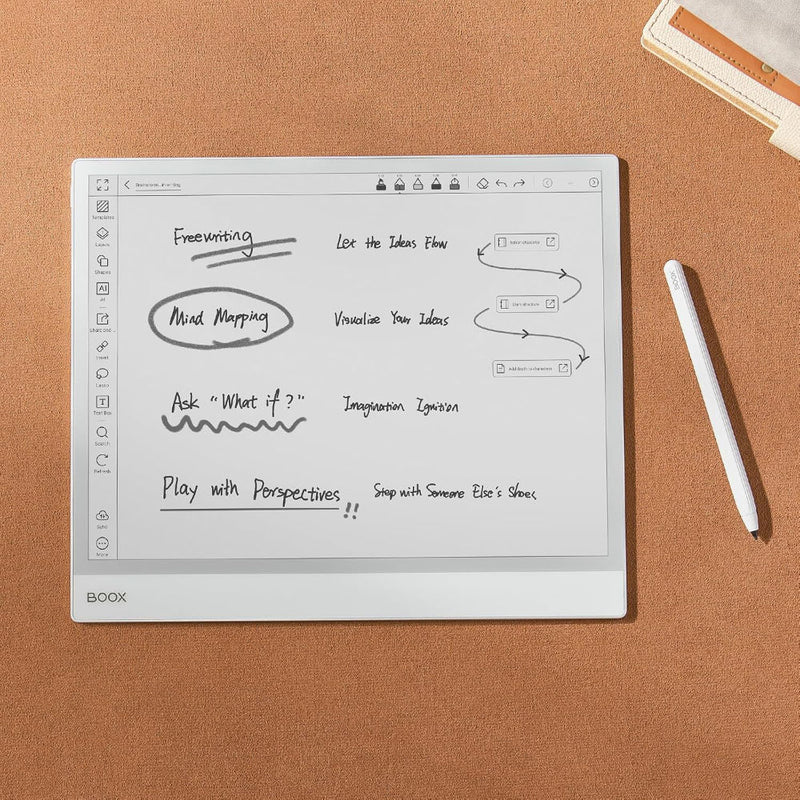 Templates
Layers
Shapes
AI
Insert
Lasso
T
Text Box
Search
Refresh
Send
More
Freewriting
Let the Ideas Flow
Mind Mapping
Visualize Your Ideas
Ask "What if ?"
Imagination Ignition
Play with Perspectives !!
Step with Someone Else's Shoes
BOOX
BOOX